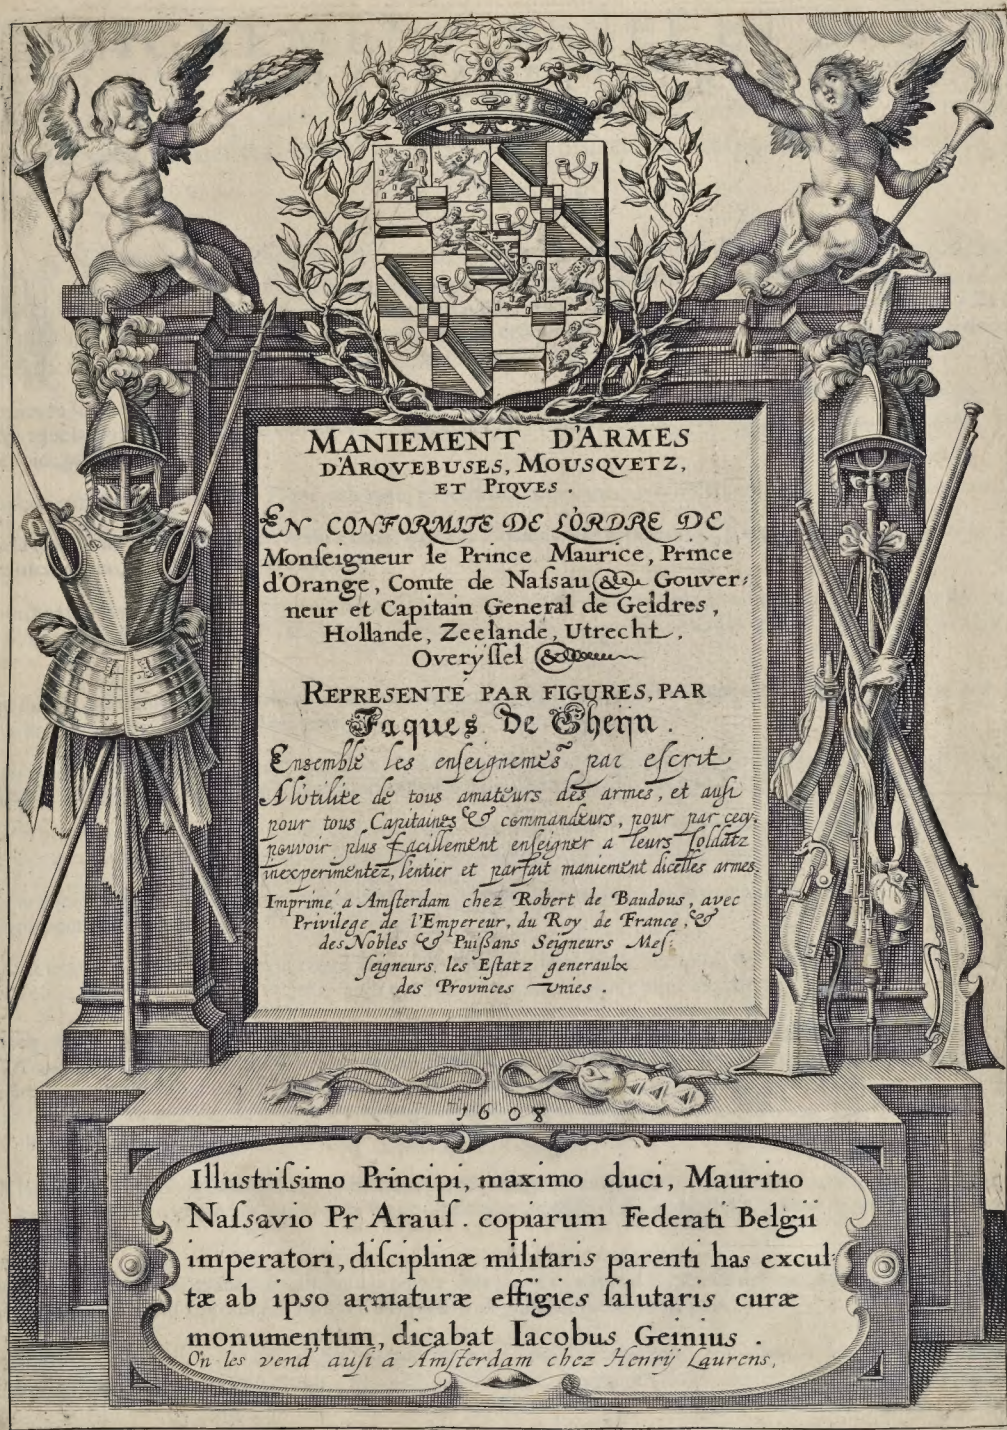 MANIEMENT D'ARMES
D'ARQVEBUSES, MOUSQVETZ,
ET PIQVES.
EN CONFORMITE DE L'ORDRE DE
Monſeigneur le Prince Maurice, Prince
d'Orange, Comte de Naſsau &c. Gouver-
neur et Capitain General de Geldres,
Hollande, Zeelande, Utrecht,
Overÿſſel &c.
REPRESENTÉ PAR FIGURES, PAR
Jaques de Gheijn.
Ensemble les enſeignemẽs par eſcrit
A l'utilite de tous amateurs des armes, et auſsi
pour tous Capitaines & commandeurs, pour par cecy
pouvoir plus facillement enſeigner a leurs ſoldatz
inexperimentez, l'entier et parfait maniement dicelles armes.
Imprimé a Amſterdam chez Robert de Baudous, avec
Privilege de l'Empereur, du Roy de France, &
des Nobles & Puiſsans Seigneurs Meſ-
ſeigneurs les Eſtatz generaulx
des Provinces Unies.
1608
Illustriſsimo Principi, maximo duci, Mauritio
Naſsavio Pr Arauſ. copiarum Federati Belgii
imperatori, diſciplinæ militaris parenti has excul-
tæ ab ipso armaturæ effigies ſalutaris curæ
monumentum, dicabat Iacobus Geinius.
On les vend auſsi a Amſterdam chez Henrij Laurens,